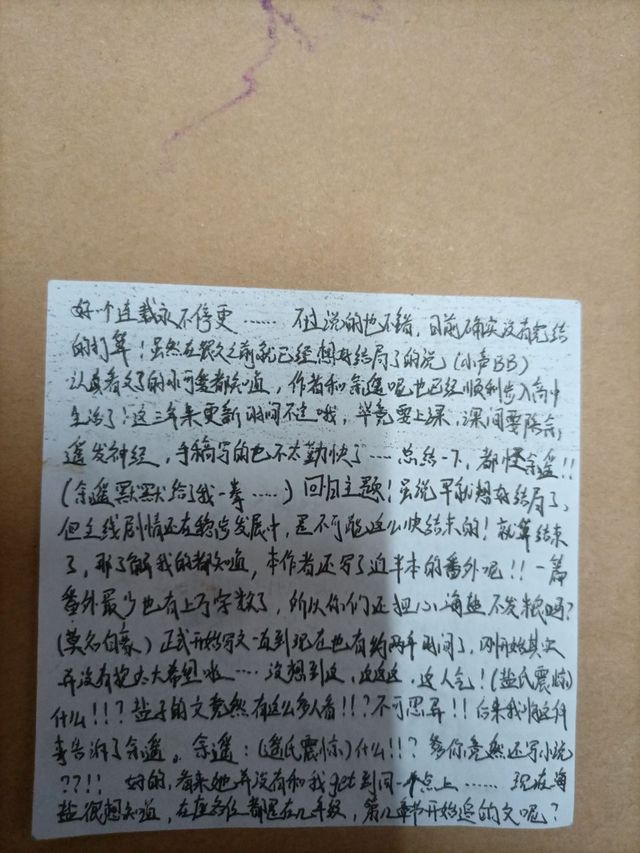 好一个连载永不停更…… 不过说的也不错，目前确实没有完结
的打算！虽然在很久之前就已经想好结局了的说（小声BB）
认真看文了的小可爱都知道，作者和余遥呢也已经顺利步入高中
生活了！这三年来更新时间不过哦，毕竟要上课，课间要陪余
遥发神经，手稿写的也不太勤快了…… 总结一下，都怪余遥!!
（余遥默默给了我一拳……）回归主题！虽说早就想好结局了，
但主线剧情还在稳步发展中，是不可能这么快结束的！就算结束
了，那了解我的都知道，本作者还写了近半本的番外呢!! 一篇
番外最少也有上万字数了，所以你们还担心海盐不发粮吗？
（莫名自豪）正式开始写文一直到现在也有约两年时间了，刚开始其实
并没有抱太大希望啦…… 没想到这，这这这，这人气！（盐氏震惊）
什么!!？盐子的文竟然有这么多人看!!？不可思异!! 后来我将这件
事告诉了余遥。余遥：（遥氏震惊）什么!!？爹你竟然还写小说
??!! 好的，看来她并没有和我get到同一个点上…… 现在海
盐很想知道，在座各位都是在几年级，第几章节开始追的文呢？